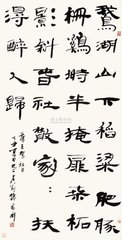 鵞湖山下稻粱肥豚
柵鷄塒半掩扉桑柘
影斜春社散家〻扶
得醉人歸
唐王駕社日